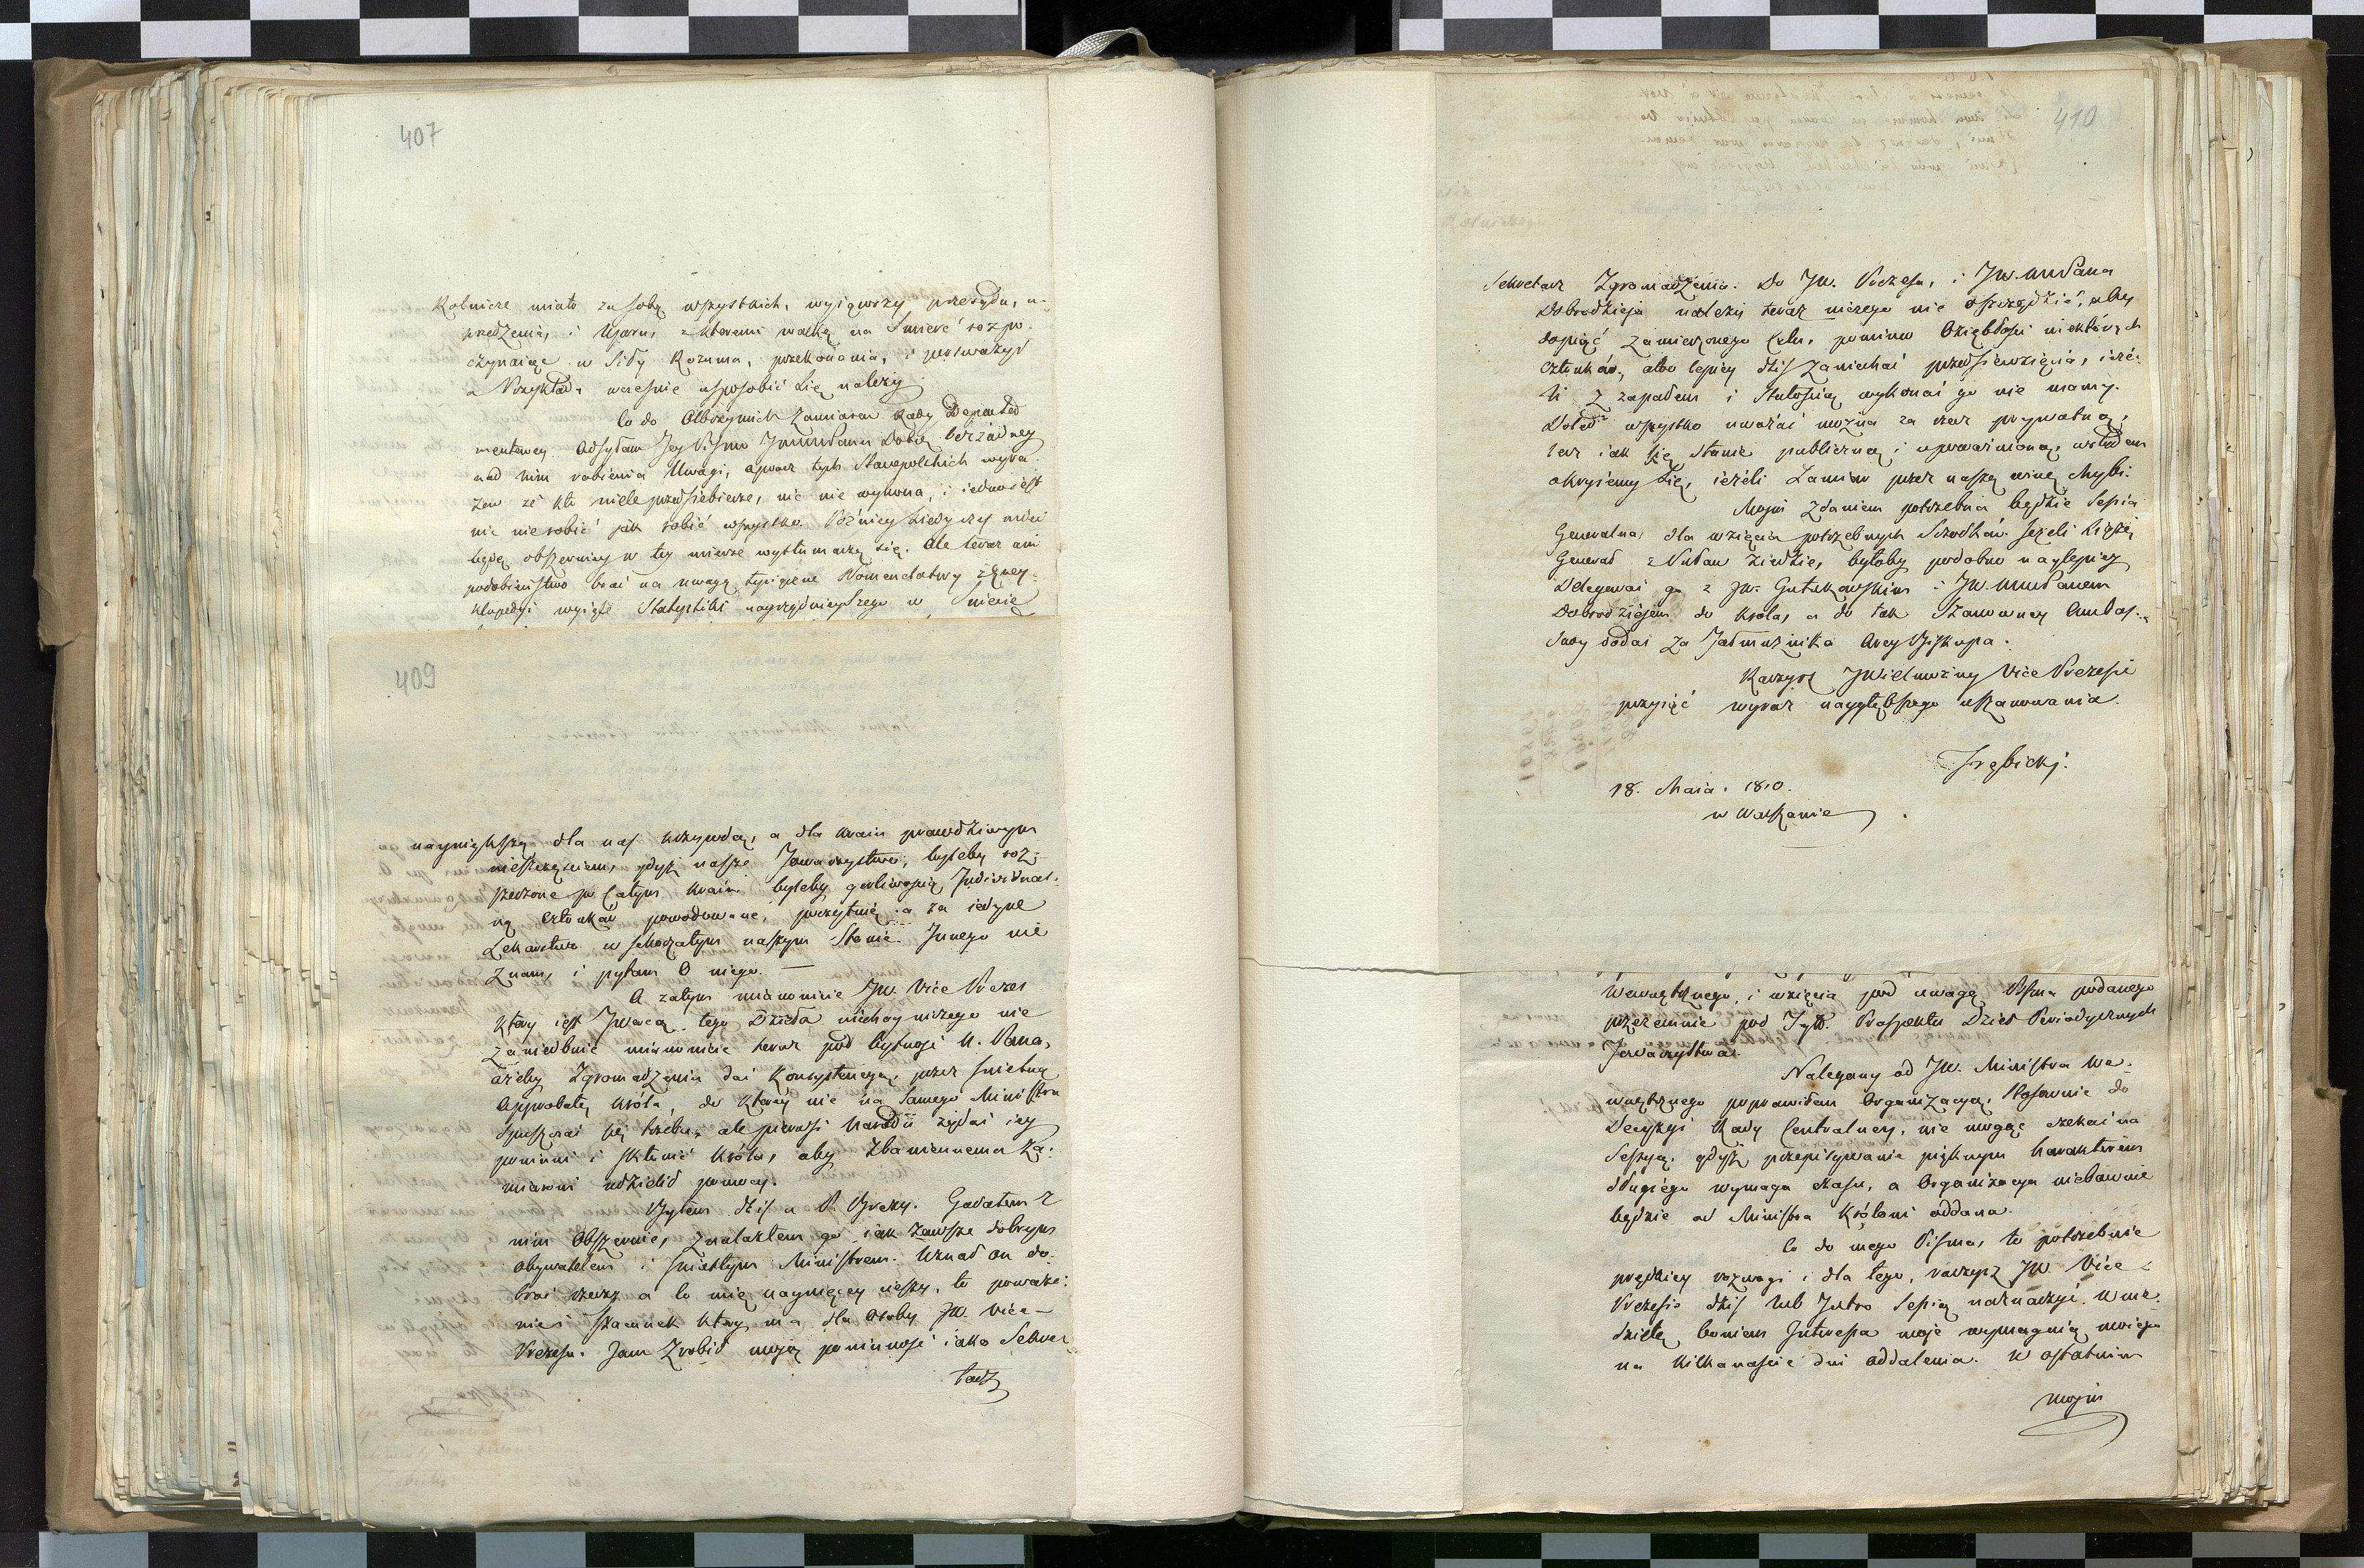 407
Rolnicze miało za sobą wszystkich, wyiąwszy przesądu, u-
przedzenia, i Uporu, z któremi walkę na Smierć rozpo-
czynaiąc w Siły Rozumu, przekonania, i perswazyi
a Przykładu wcześnie usposobić Się należy
Co do Olbrzymich Zamiarów Rady Departa-
mentowey Odsyłam Jey Pismo JWWPanu Dobr. bez żadney
nad nim robienia Uwagi, oprocz tych Staropolskich wyra-
zow że kto wiele przedsiebierze, nic nie wykona, i iedno iest
nic nie robić jak robić wszystko. Późniey kiedy czas mieć
będę obszerniey w tey mierze wytłumaczę się. Ale teraz ani
podobieństwo brać na uwagę tysiączne Nomenclatury z Ency-
klopedyi wyięte Statystiki
409
naywiększą dla nas krzywdą, a dla kraiu prawdziwym
nieszczęściem, gdyż nasze Towarzystwo, byleby roz-
szerzone po Całym kraiu byleby gorliwością Individual-
ną Członków powodowane, poczytuię ia za iedyne
Lekarstwo w schorzałym naszym Stanie. Innego nie
Znam, i pytam O niego. —
A zatym mianowicie JW. Vice Prezes
który iest Twórcą tego Dzieła niechay niczego nie
zaniedbuie mianowicie teraz pod bytność N. Pana,
ażeby Zgromadzeniu dać Konsystencyą, przez Swietną
Approbatę Króla, do którey nie na Samego Ministra
Spuszczać się trzeba, ale pierwsi Narodu żądać iey
powinni i skłonić Króla, aby zbawiennemu Za-
miarowi udzielił pomocy.
Byłem dziś u P. Brezy. Gadałem z
nim Obszernie, znalazłem go iak Zawsze dobrym
obywatelem i Swiatłym Ministrem. Uznał on do-
broć rzeczy a co mię naywięcey cieszy, to poważe-
nie i szacunek który ma dla Osoby JW. Vice-
Prezesa. Jam Zrobił moją powinność iako Sekre-
tarz
410
Sekretarz Zgromadzenia. Do JW. Prezesa, i JW. WWPana
Dobrodzieja należy teraz niczego nie oszczędzić, aby
dopiąć zamierzonego Celu, pomimo Oziębłości niektórych
Członków, albo lepiey dziś Zaniechać przedsiewzięcia, ieże-
li z zapałem i Stałością wykonać go nie mamy.
Dotąd wszystko uważać można za rzecz prywatną,
lecz iak się Stanie publiczną i upoważnioną, wstydem
okryiemy Się, ieżeli Zamiar przez naszą winę chybi.
Moim Zdaniem potrzebna będzie Sessia
Generalna, dla wzięcia potrzebnych Srodków. Jeżeli Książę
Generał z Puław ziedzie, byłoby podobno naylepiey
Delegować go z JW. Gutakowskim i JW. WWPanem
Dobrodziejem do Króla, a do tak Szanowney Ambas-
sady dodać za Jałmużnika Arcy Biskupa.
Raczysz JWielmożny Vice Prezesie
przyiąć wyraz naygłębszego uszanowania.
Trębicki.
18. Maia. 1810.
w Warszawie
Wewnętrznego, i wzięcia pod uwagę Pisma podanego
przezemnie pod Tyt. Prospektu Dzieł Periodycznych
Towarzystwa.
Nalegany od JW. Ministra We-
wnętrznego poprawiłem Organizacyą, stosownie do
Decyzyi Rady Centralney, nie mogąc czekać na
Sessyą, gdyż przepisywanie pięknym Charakterem
długiego wymaga czasu, a Organizacya niebawnie
będzie od Ministra Królowi oddana.
Co do mego Pisma, to potrzebuie
prędkiey rozwagi i dla tego, raczysz JW Vice-
Prezesie dziś lub Jutro Sessią naznaczyć. W nie-
dzielę bowiem Interessa moje wymagaią moiego
na kilkanaście dni oddalenia. W ostatnim
moim